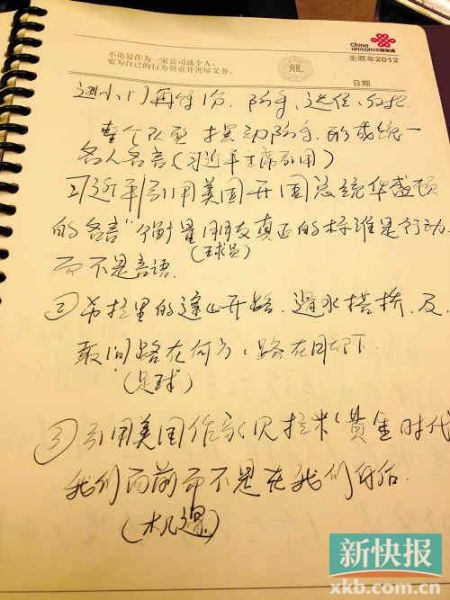 China unicom中国联通
不论是作为一家公司或个人,
要为自己的行为负责并善尽义务。
龍
壬辰年2012
日期
整个队型 摆动防守 形成统一
名人名言(习近平主席引用)
①习近平引用美国开国总统华盛顿
的名言"衡量朋友真正的标准是行动
(球员)
而不是言语.
② 希拉里的逢山开路.遇水搭桥.及
敢问路在何方,路在脚下.
(足球)
③ 引用美国作家(贝拉米"黄金时代
我们面前而不是在我们身后.
(机遇)
新快报
xkb.com.cn